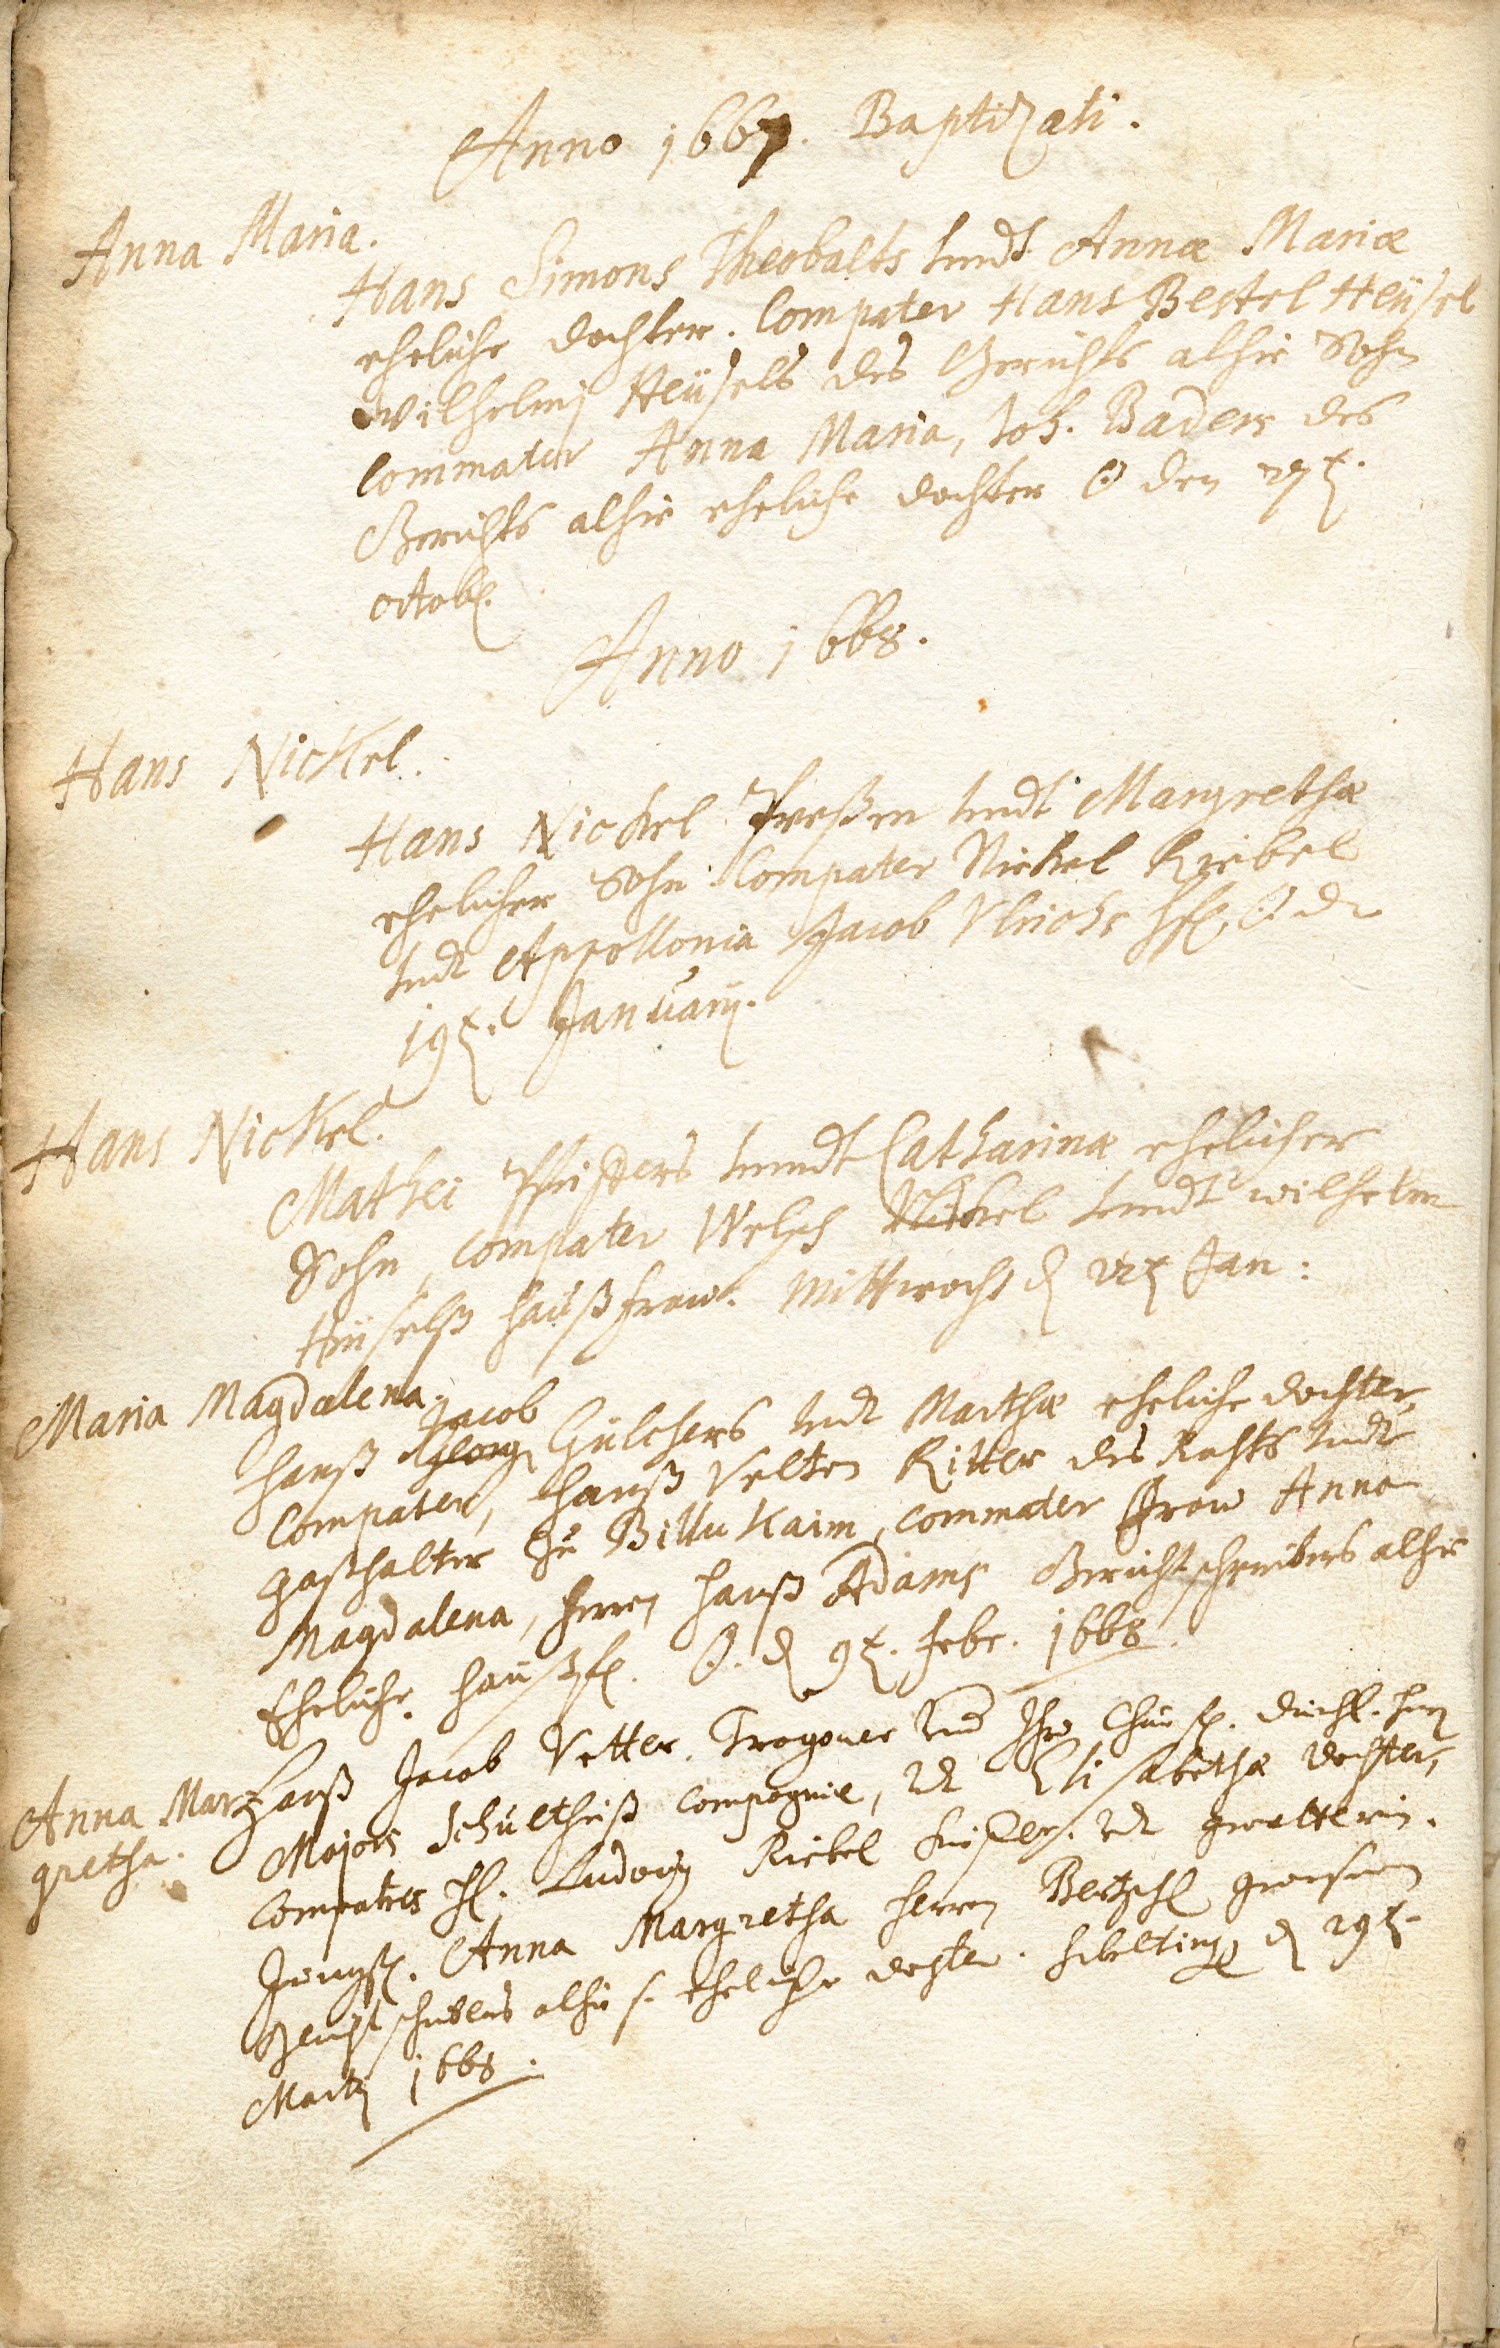 Anno 1667. Baptizati.
Anna Maria.
Hans Simons Theobalts undt Annæ Mariæ
eheliche dochter. Compater Hans Bestel Heüsel
Wilhelmj Heüsels des Gerichts alhie Sohn
Commater Anna Maria, Joh. Baders des
Gerichts alhie eheliche dochter ☉ den 27t.
octob.
Anno 1668.
Hans Nickel.
Hans Nickel undt Margrethæ
ehelicher Sohn. Compater Nickel Riebel
undt Appollonia Jacob Ulrichs hf. ☉ d
19t. January.
Hans Nickel.
Mathei Pfisters unndt Catharinæ ehelicher
Sohn, Compater Welsch Nickel undt wilhelm
Heüselß haußfraw. Mittwochs d 22t Jan:
Maria Magdalena.
Jacob
Hanß Georg Gülchers undt Marthæ eheliche dochter,
Compater, Hanß Velten Ritter des Rahts undt
gasthalter zu Billickaim, commater Fraw Anna
Magdalena, Herrn Hanß Adams Gerichtschreibers alhie
Eheliche haußf. ☉. d 9t. Febr. 1668.
Anna Mar
gretha.
Hanß Jacob Vetter. Tragoner und Ihro Churf. durchl. Herrn
Majors Schultheiß Compagnie, undt Elisabethæ dochter,
Compatres H. Ludwig Riebel undt
Jungf. Anna Margretha Herrn gewesenen
alhie s. eheliche dochter. d 29t.
Martij 1668.